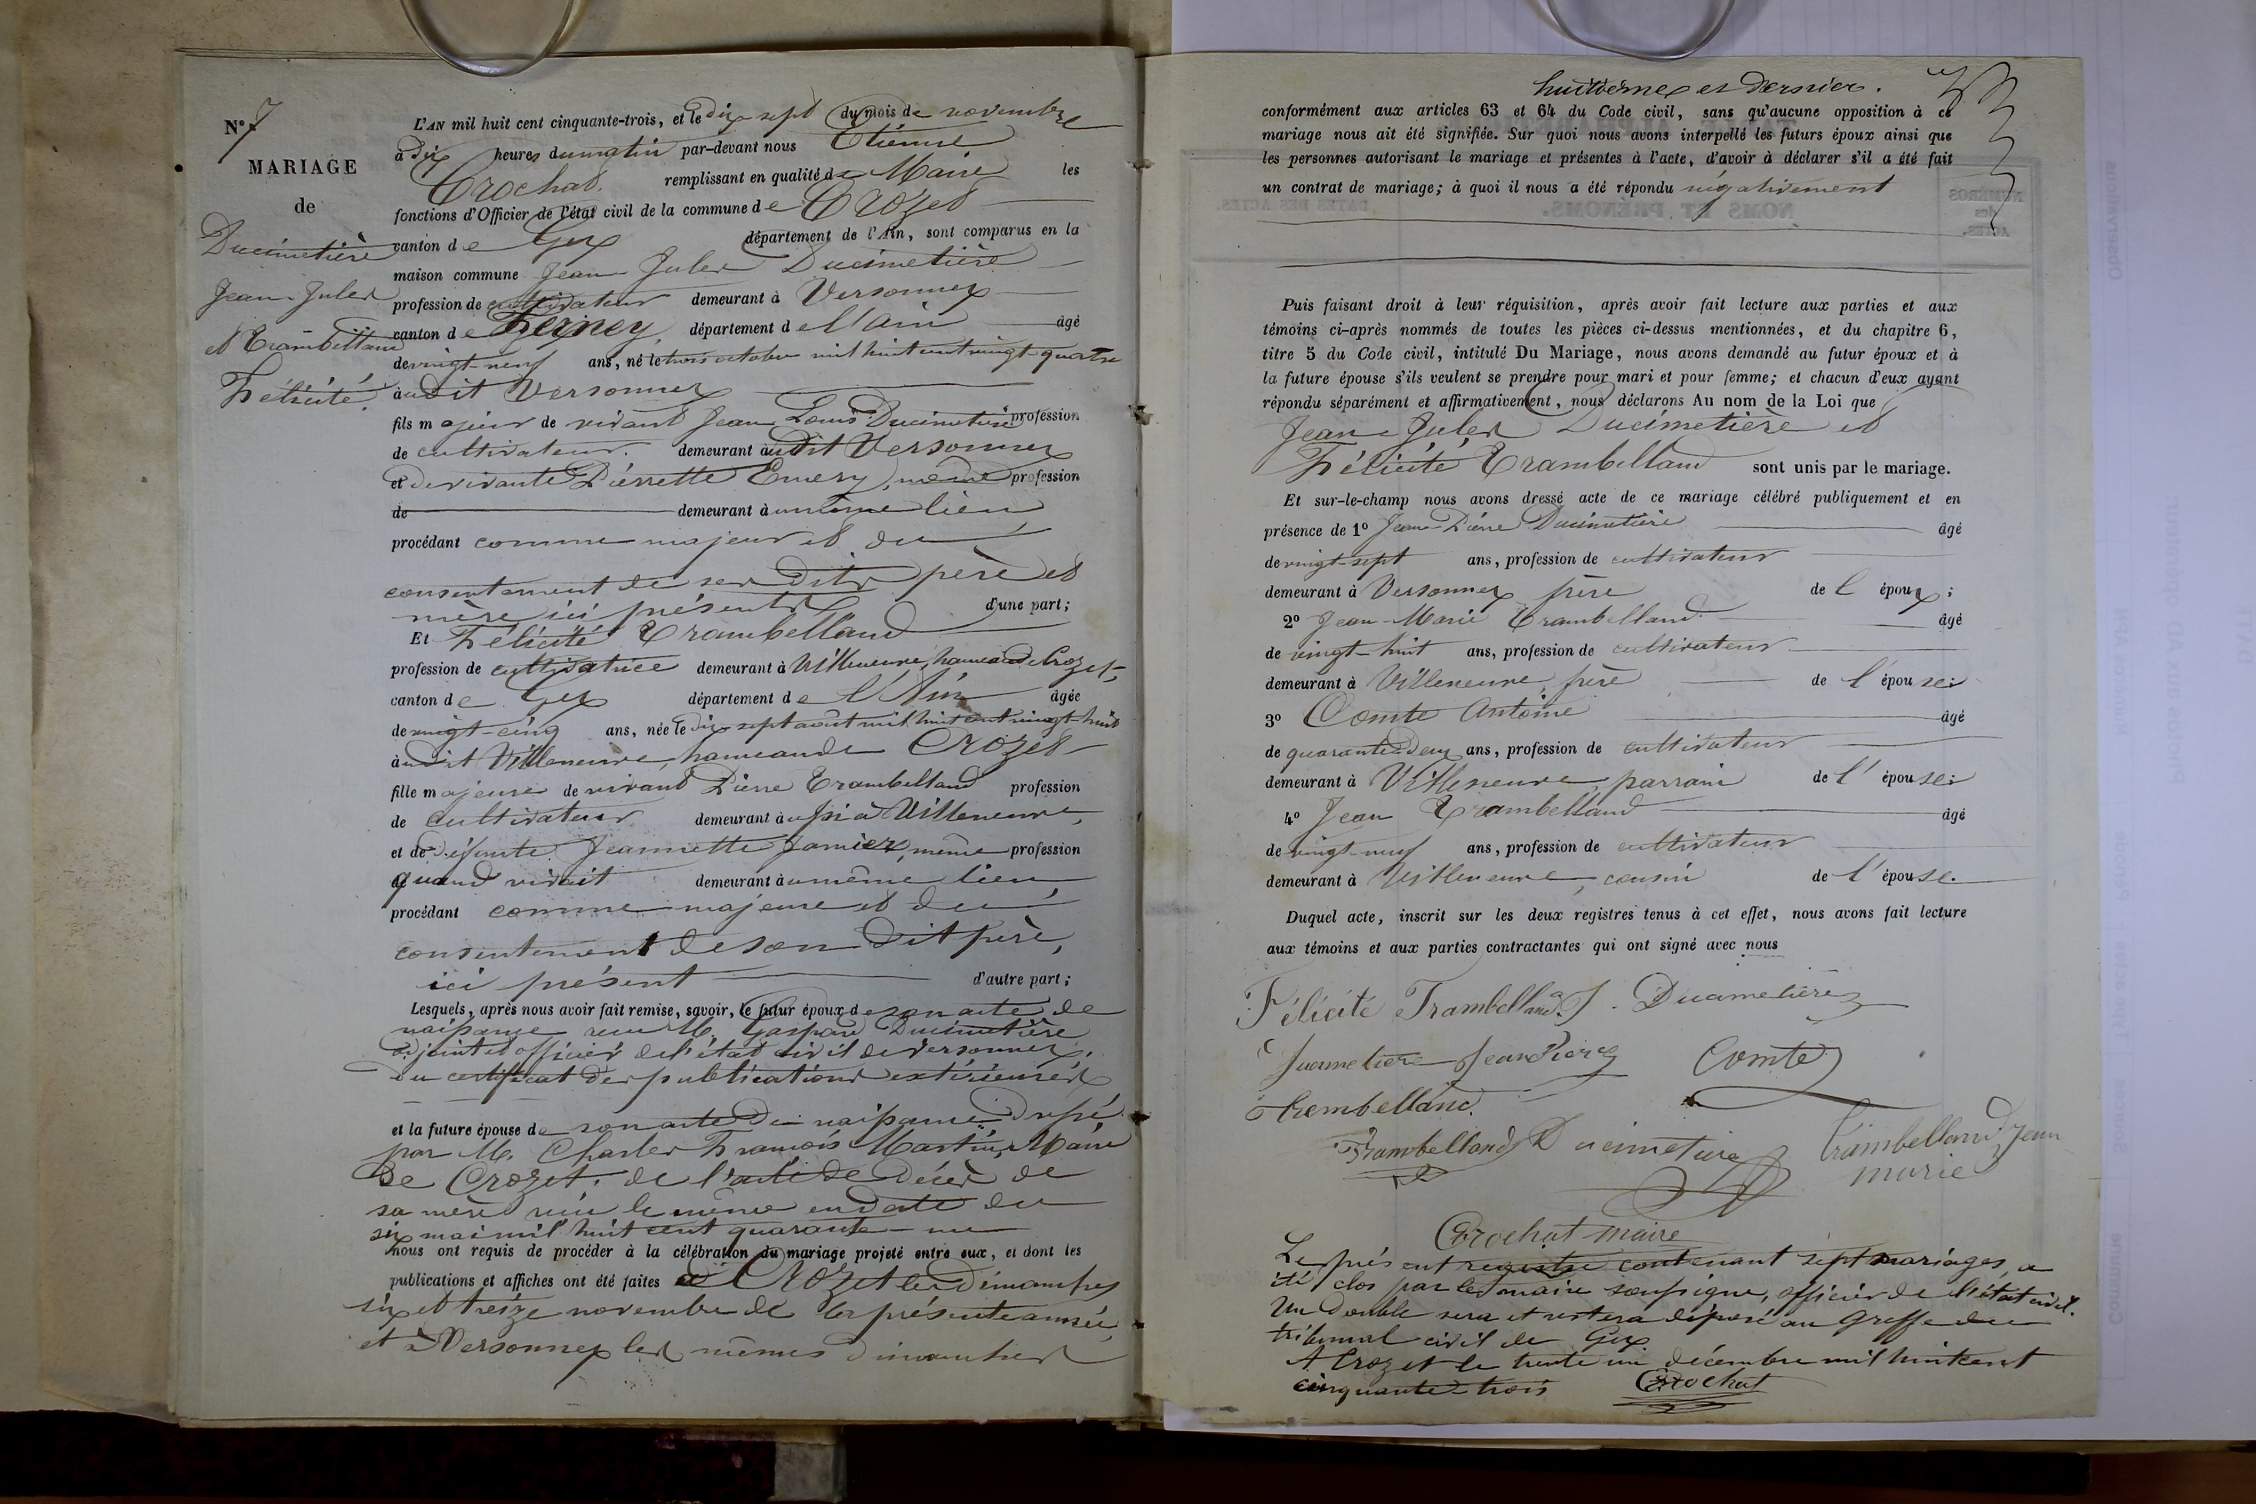 N° 7
MARIAGE
de
Ducimetière
Jean-Jules
et Trambelland
Félicité.
L'AN mil huit cent cinquante-trois, et le dix-sept du mois de novembre
à dix heures du matin par-devant nous Etienne
Crochat remplissant en qualité de Maire les
fonctions d'Officier de l'état civil de la commune de Crozet
canton de Gex département de l'Ain, sont comparus en la
maison commune Jean-Jules Ducimetière
profession de cultivateur demeurant à Versonnex
canton de Ferney, département de l'Ain âgé
de vingt-neuf ans, né le trois octobre mil huit cent vingt-quatre
audit Versonnex
fils majeur de vivant Jean-Louis Ducimetière profession
de cultivateur. demeurant audit Versonnex
et de vivante Pierrette Emery, même profession
de demeurant au même lieu,
procédant comme majeur et du
consentement de ses dits père et
mère ici présents d'une part;
Et Félicité Trambelland
profession de cultivatrice demeurant à Villeneuve, hameau de Crozet,
canton de Gex département de l'Ain âgée
de vingt-cinq ans, née le dix-sept août mil huit cent vingt-huit
audit Villeneuve, hameau de Crozet
fille majeure de vivant Pierre Trambelland profession
de cultivateur demeurant aussi à Villeneuve,
et de défunte Jeannette Janier, même profession
quand vivait demeurant au même lieu,
procédant comme majeure et du
consentement de son dit père,
ici présent d'autre part;
Lesquels, après nous avoir fait remise, savoir, le futur époux de son acte de
naissance reçu M. Gaspard Ducimetière
adjoint et officier de l'état civil de Versonnex,
du certificat des publications extérieures
et la future épouse de son acte de naissance dressé
par M. Charles François Martin, Maire
de Crozet, de l'acte de décès de
sa mère reçu le même en date du
six mai mil huit cent quarante-un
nous ont requis de procéder à la célébration du mariage projeté entre eux, et dont les
publications et affiches ont été faites à Crozet les dimanches
six et treize novembre de la présente année,
et à Versonnex les mêmes dimanches
huitième et dernier.
conformément aux articles 63 et 64 du Code civil, sans qu'aucune opposition à ce
mariage nous ait été signifiée. Sur quoi nous avons interpellé les futurs époux ainsi que
les personnes autorisant le mariage et présentes à l'acte, d'avoir à déclarer s'il a été fait
un contrat de mariage; à quoi il nous a été répondu négativement
Puis faisant droit à leur réquisition, après avoir fait lecture aux parties et aux
témoins ci-après nommés de toutes les pièces ci-dessus mentionnées, et du chapitre 6,
titre 5 du Code civil, intitulé Du Mariage, nous avons demandé au futur époux et à
la future épouse s'ils veulent se prendre pour mari et pour femme; et chacun d'eux ayant
répondu séparément et affirmativement, nous déclarons Au nom de la Loi que
Jean-Jules Ducimetière et
Félicité Trambelland sont unis par le mariage.
Et sur-le-champ nous avons dressé acte de ce mariage célébré publiquement et en
présence de 1° Jean-Pierre Ducimetière âgé
de vingt-sept ans, profession de cultivateur
demeurant à Versonnex frère de l'époux;
2° Jean-Marie Trambelland. âgé
de vingt-huit ans, profession de cultivateur
demeurant à Villeneuve, frère de l'épouse;
3° Comte Antoine âgé
de quarante-deux ans, profession de cultivateur
demeurant à Villeneuve, parrain de l'épouse;
4° Jean Trambelland âgé
de vingt-neuf ans, profession de cultivateur
demeurant à Villeneuve, cousin de l'épouse.
Duquel acte, inscrit sur les deux registres tenus à cet effet, nous avons fait lecture
aux témoins et aux parties contractantes qui ont signé avec nous
Félicité Trambelland J. Ducimetière
Ducimetiere Jean Pierre Comte
trembelland.
Trambelland Ducimetiere Trambelland Jean
marie
Crochat maire
Le présent registre contenant sept mariages, a
été clos par le maire soussigné, officier de l'état civil.
Un double sera et restera déposé au Greffe du
tribunal civil de Gex.
A Crozet le trente un décembre mil huit cent
cinquante-trois Crochat